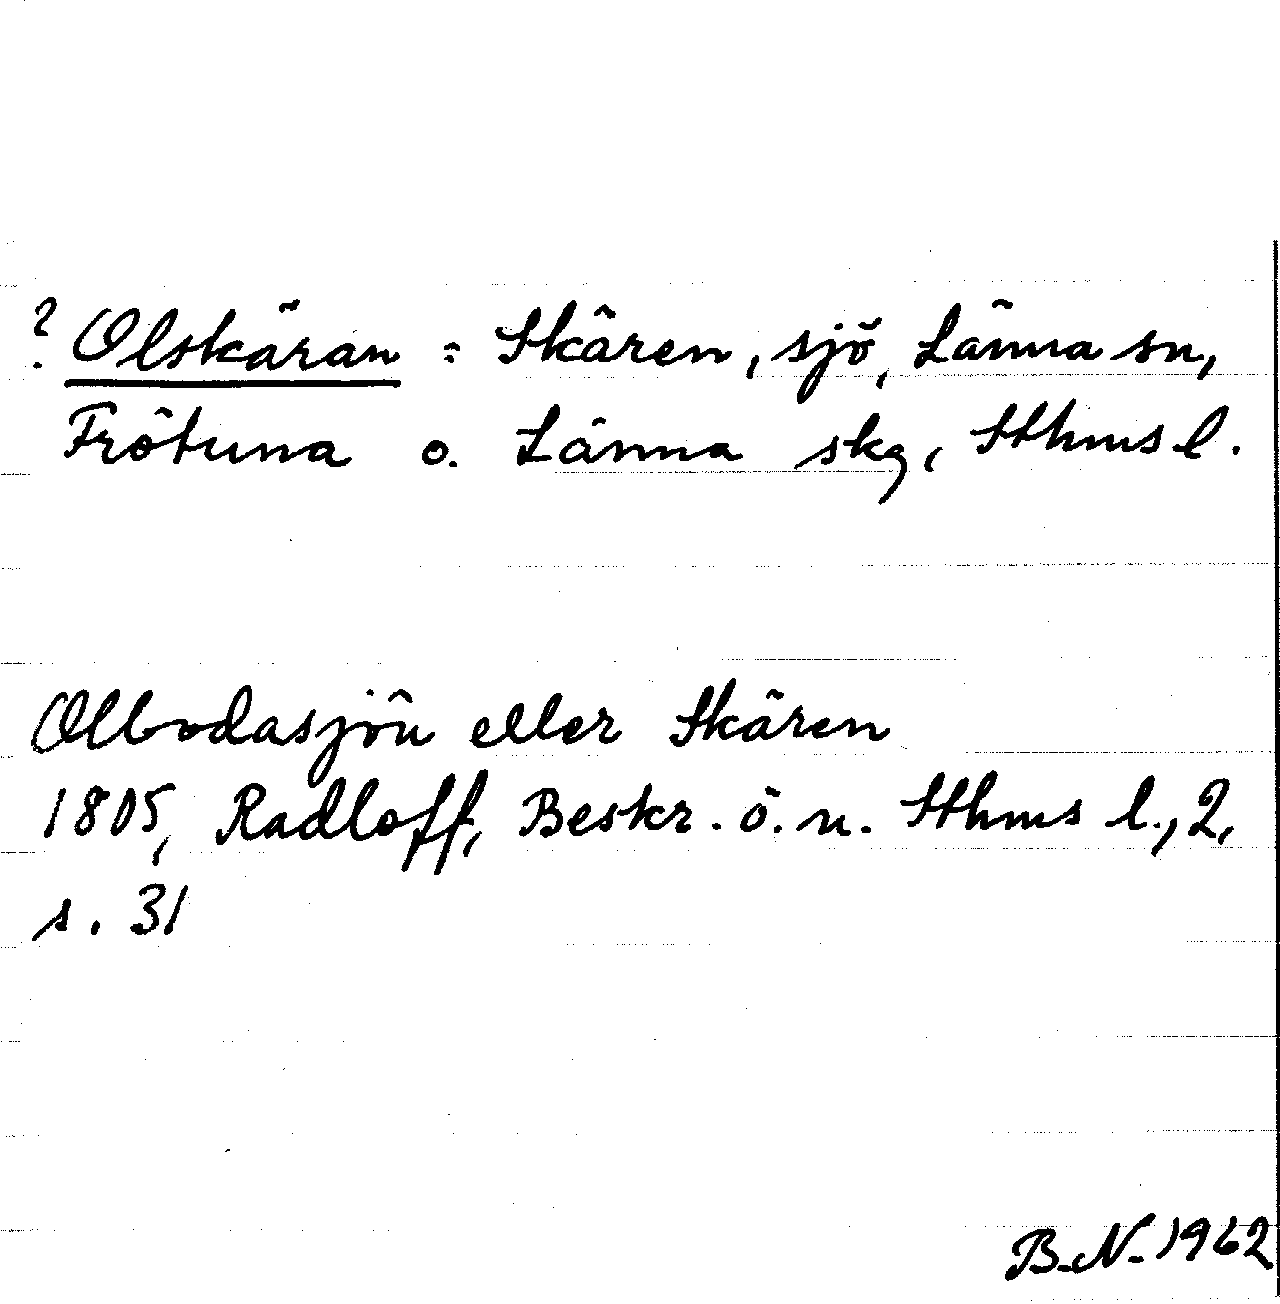 ? Olskäran = Skären, sjö, Länna sn,
Frötuna o. Länna skg, Sthms l.
Olbodasjön eller Skären
1805, Radloff, Beskr. ö. n. Sthms l., 2,
s. 31
B.N. 1962